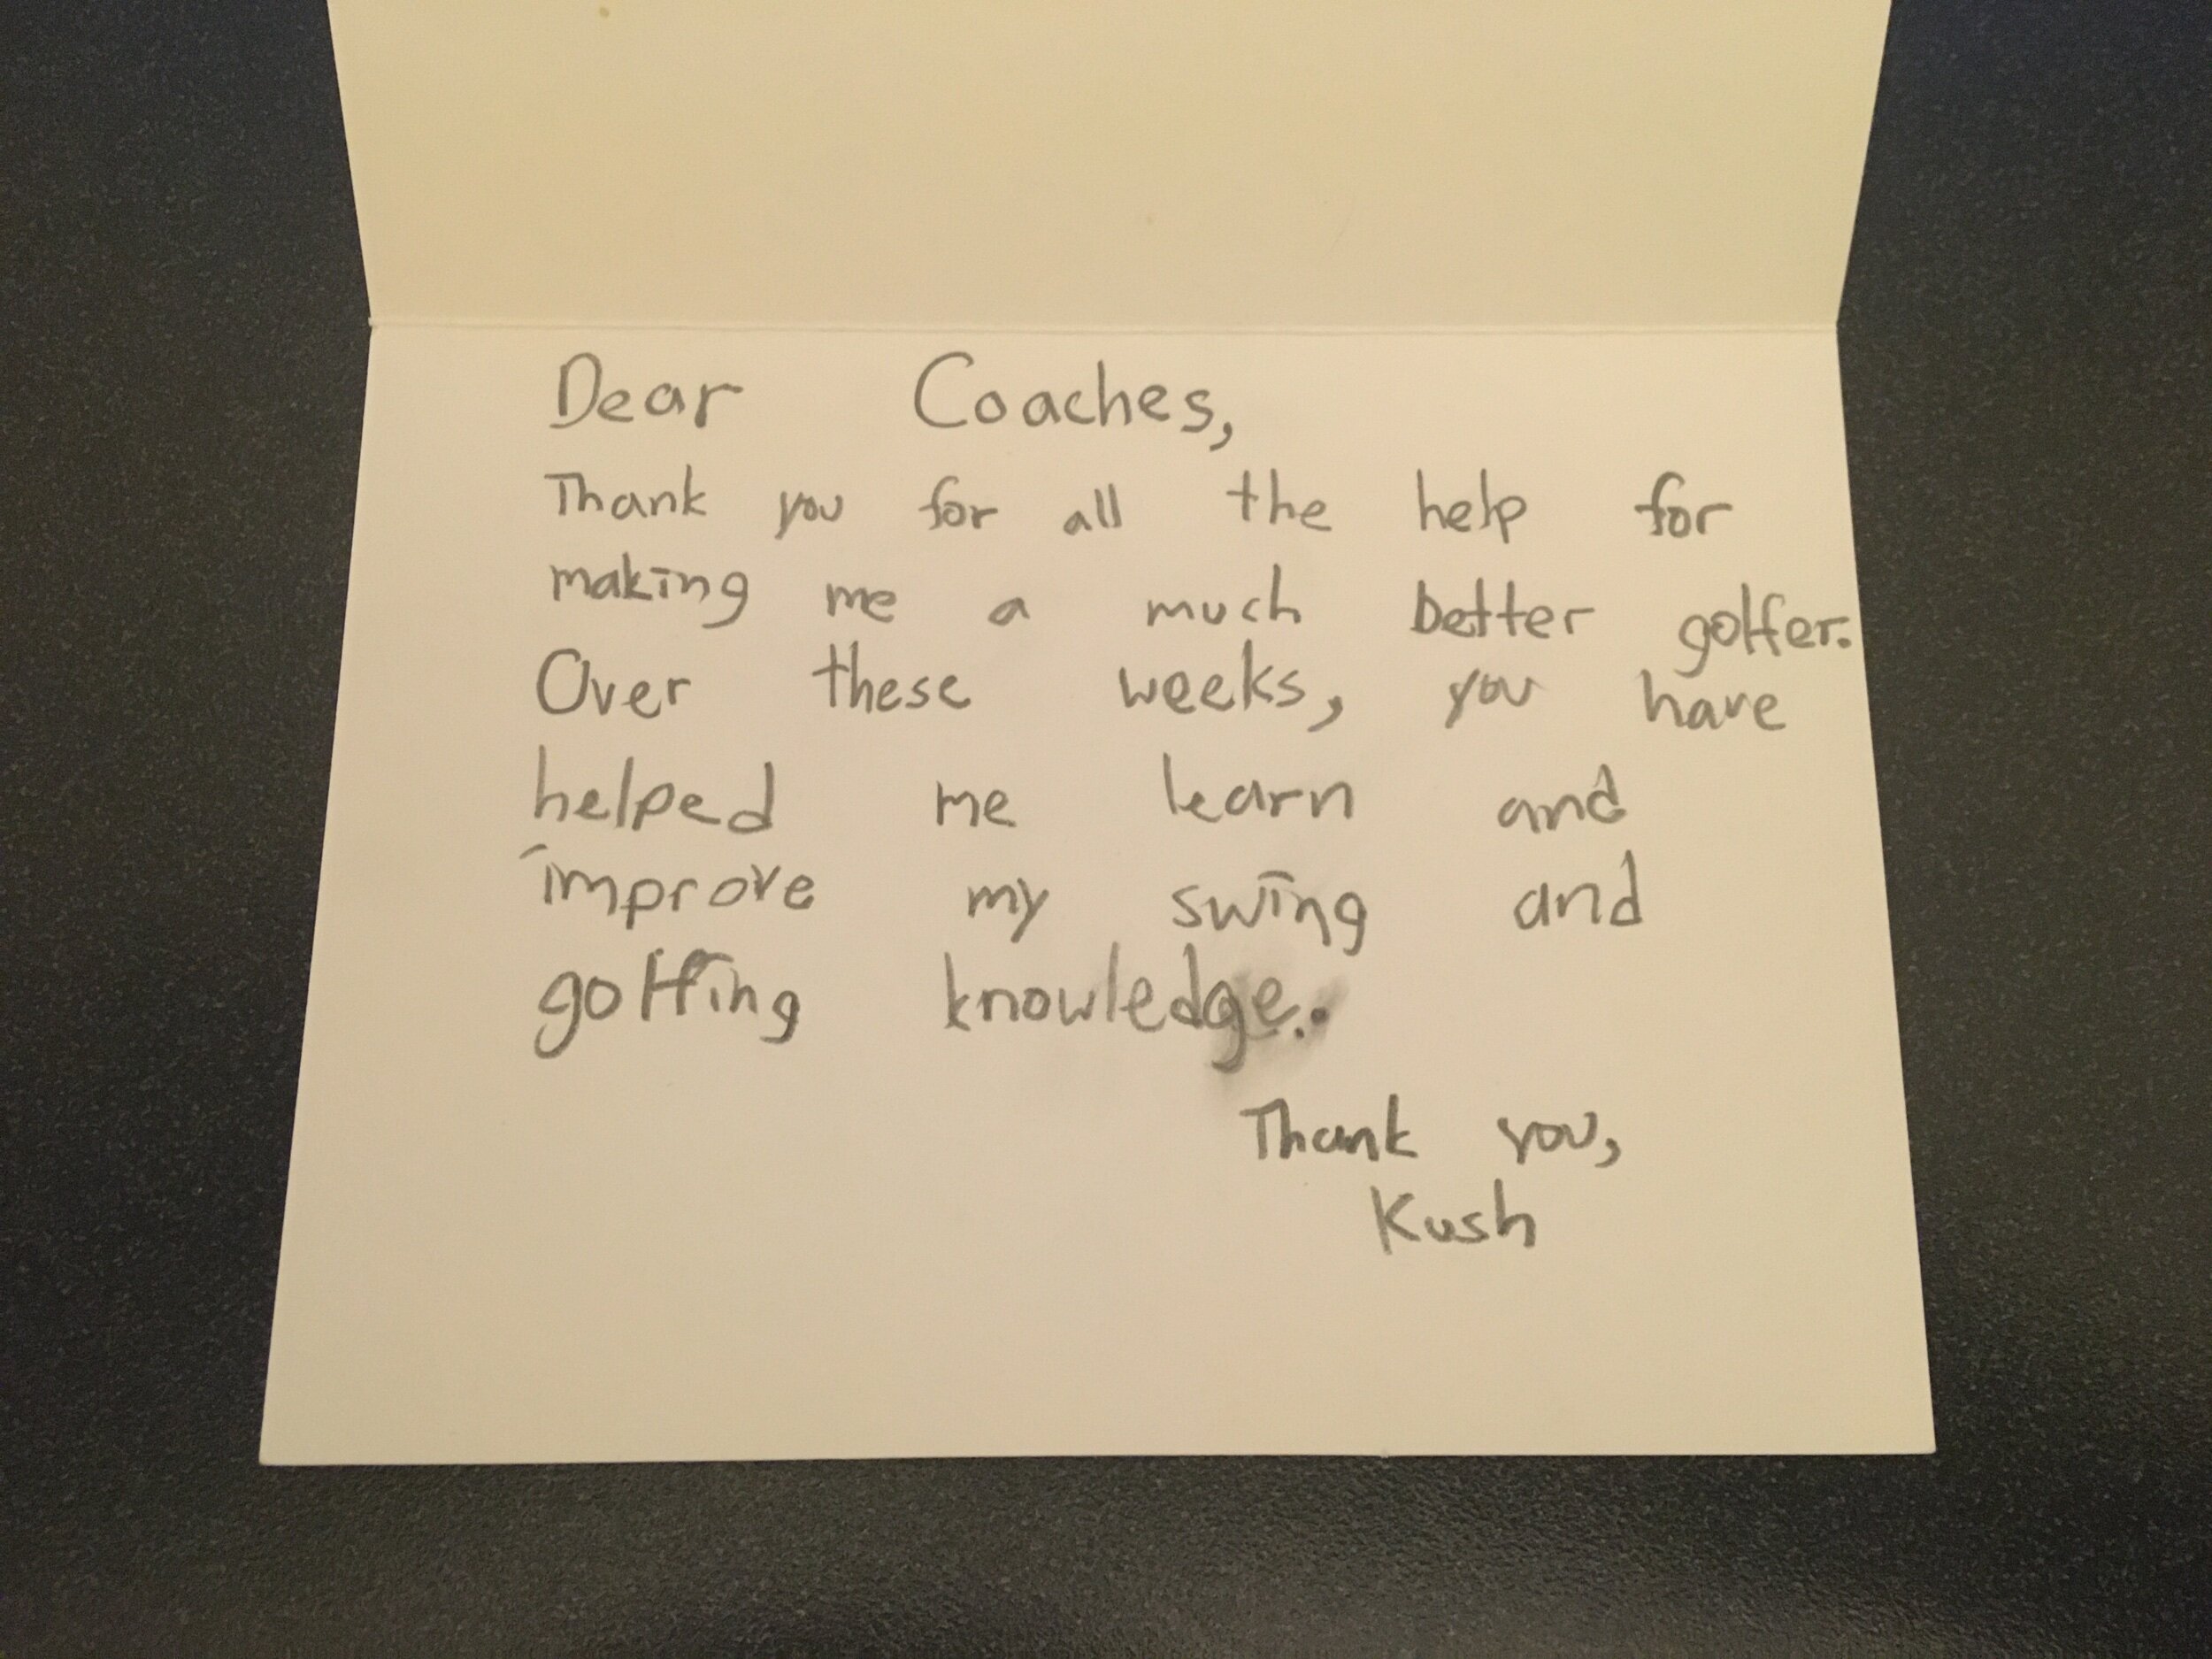 Dear Coaches,
Thank you for all the help for
making me a much better golfer.
Over these weeks, you have
helped me learn and
improve my swing and
golfing knowledge..
Thank you,
Kush